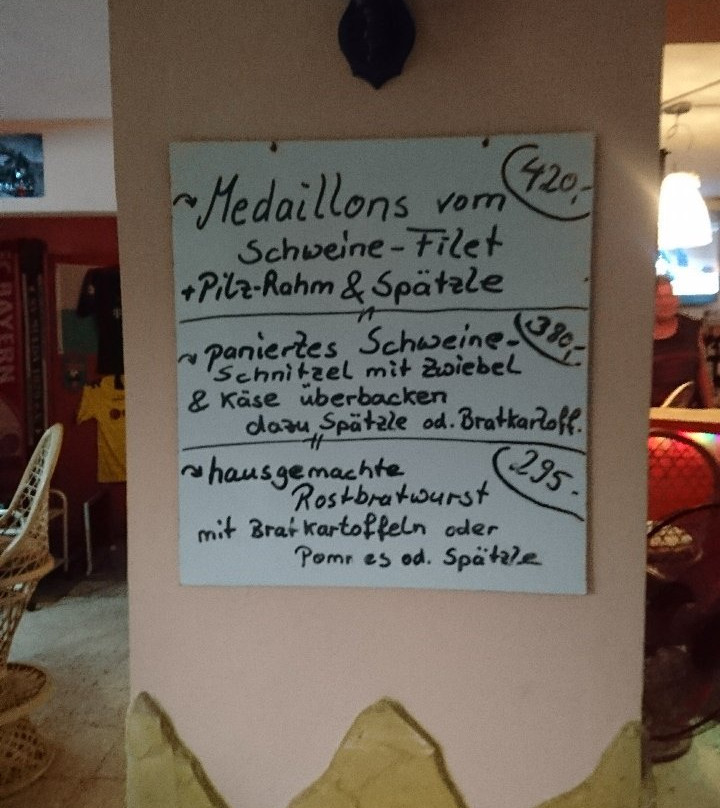 ~Medaillons vom 420,-
Schweine-Filet
+Pilz-Rahm & Spätzle
~ paniertes Schweine- 380,-
Schnitzel mit Zwiebel
& Käse überbacken
dazu Spätzle od. Bratkartoff.
~hausgemachte 295.-
Rostbratwurst
mit Bratkartoffeln oder
Pomr es od. Spätzle
BAYERN